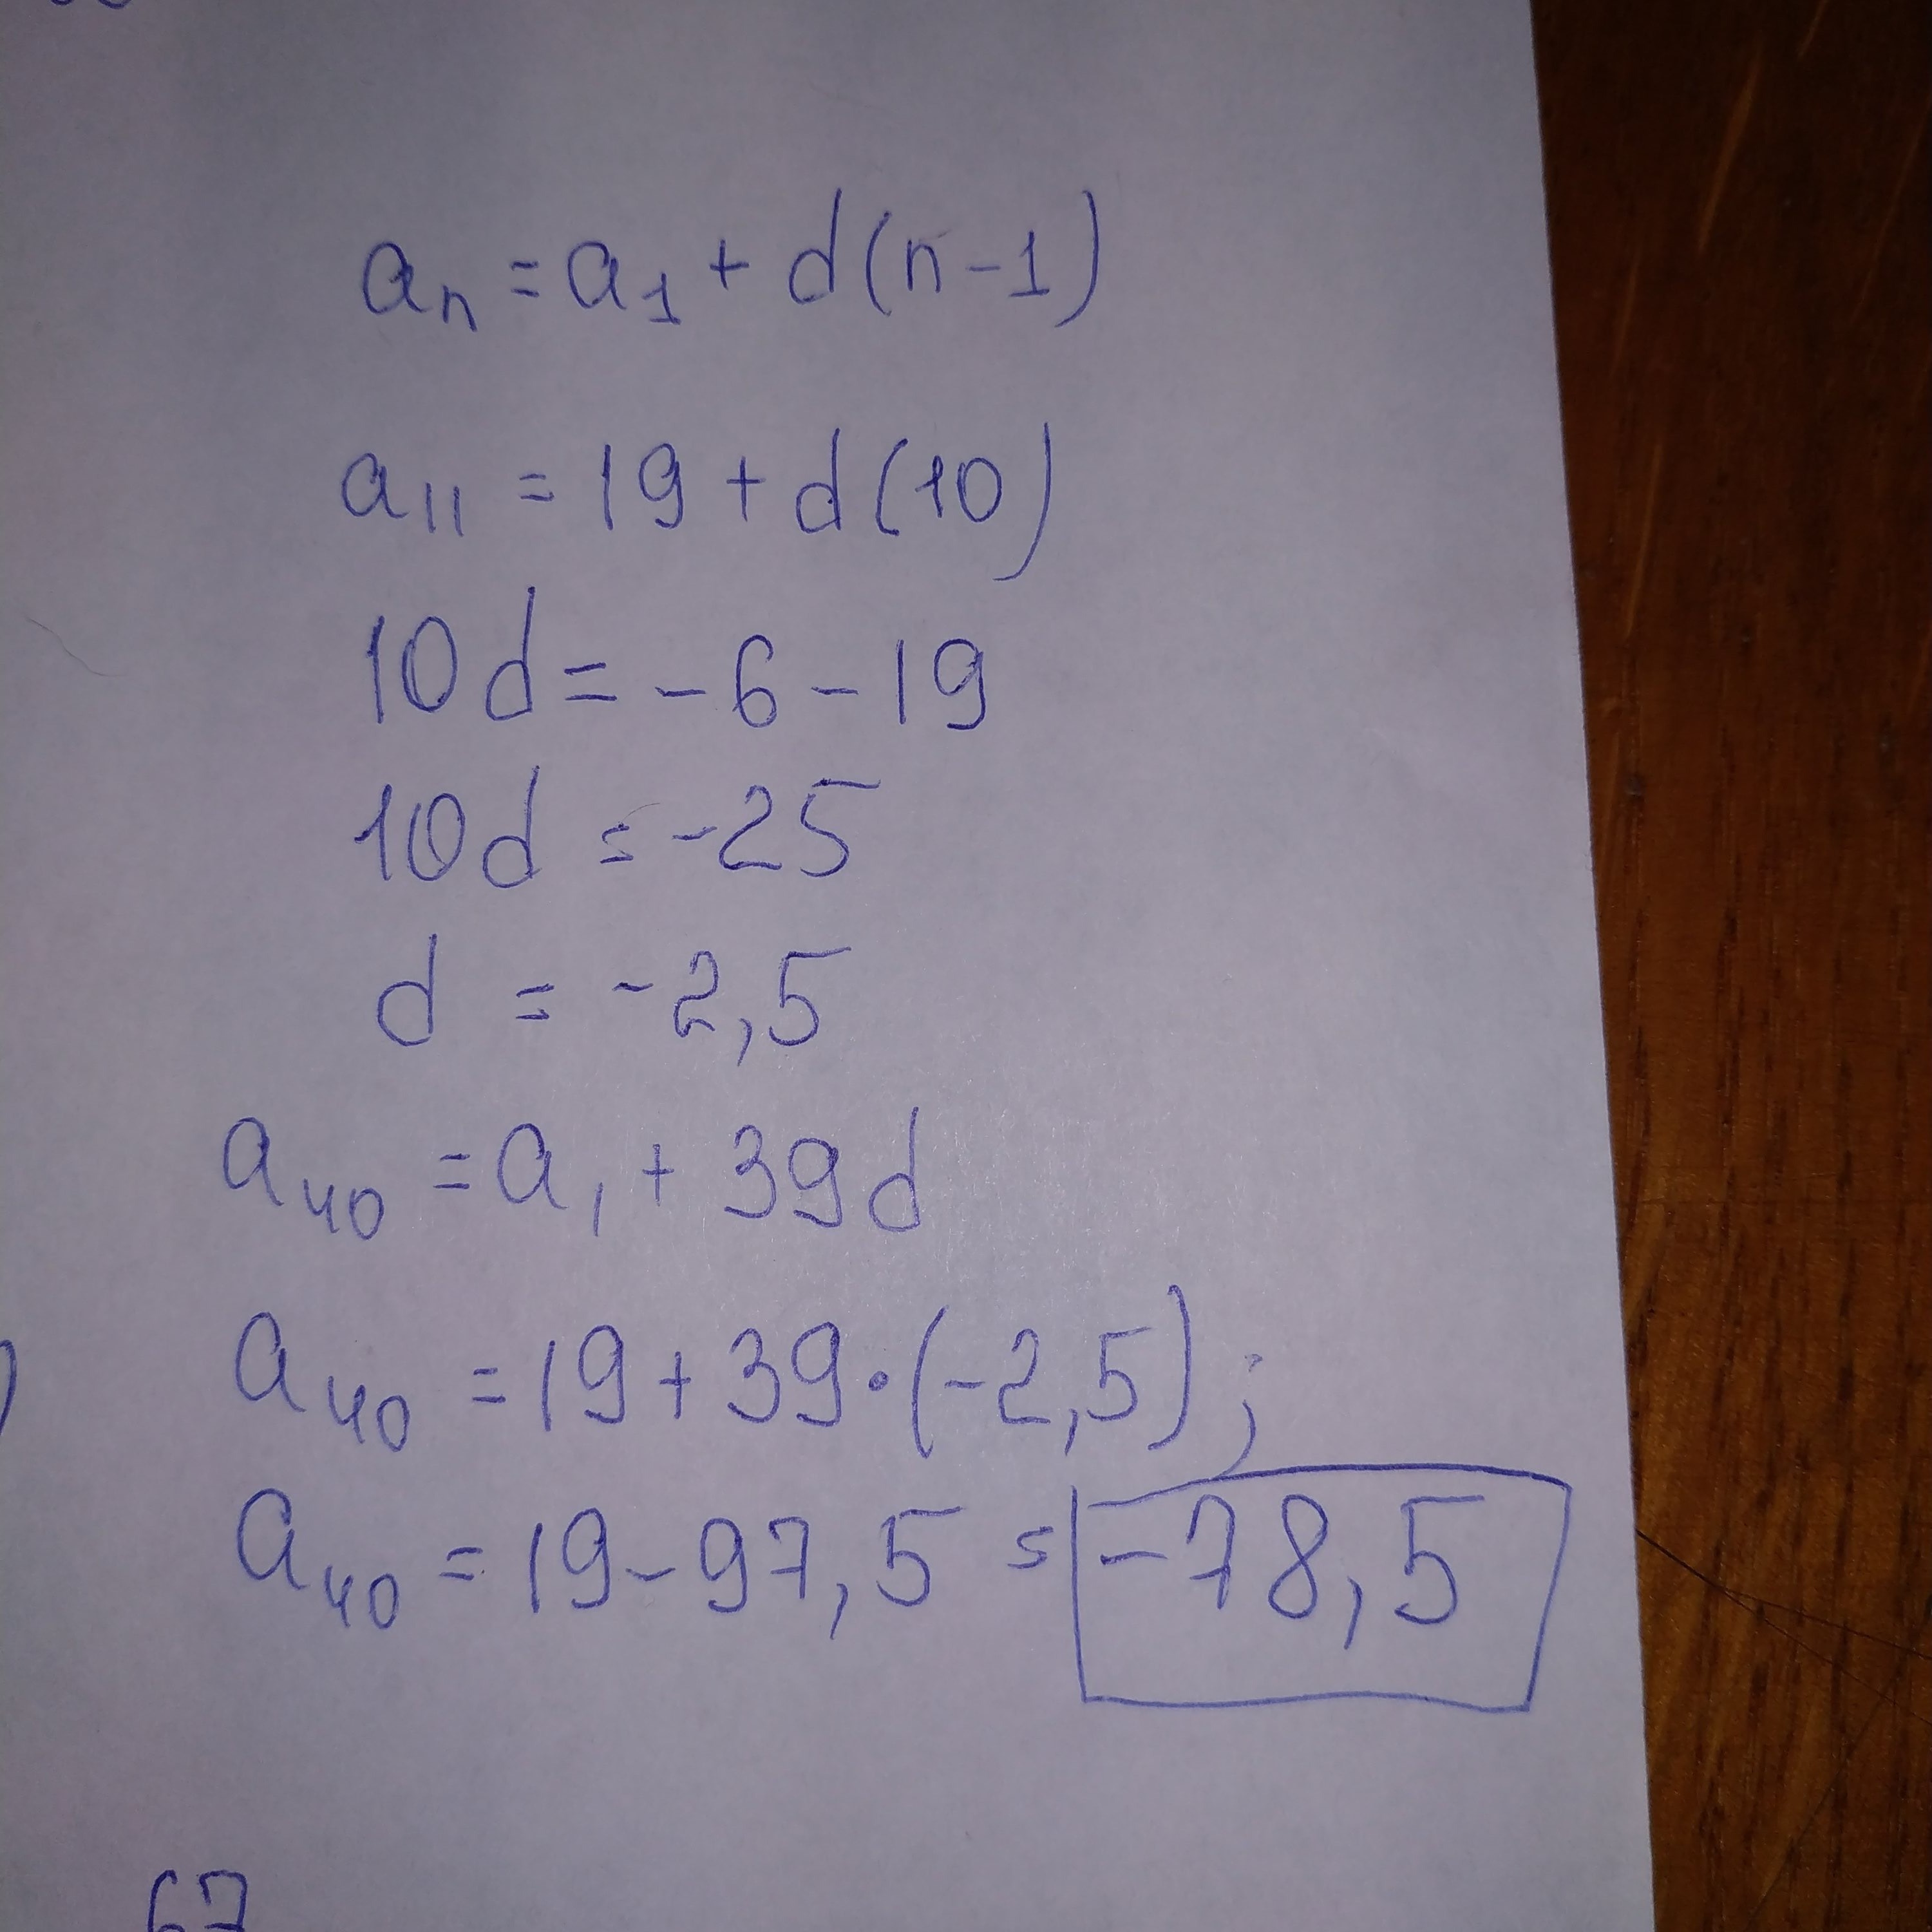 aₙ = a₁ + d(n-1)
a₁₁ = 19 + d(10)
10d = -6-19
10d = -25
d = -2,5
a₄₀ = a₁ + 39d
a₄₀ = 19+39·(-2,5);
a₄₀ = 19-97,5 = -78,5
67